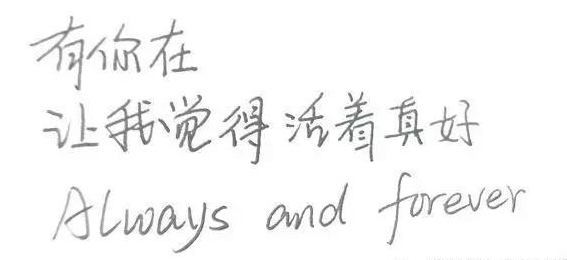 有你在
让我觉得活着真好
Always and forever